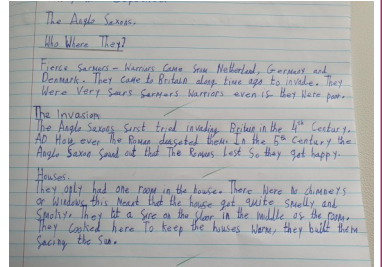 The Anglo Saxons.
Who Where They?
Fierce farmers - Warriors Came from Netherland, Germany and
Denmark. They came to Britain along time ago to invade. They
Were Very fears farmers Warriors even if they Were poor.
The Invasion
The Anglo Saxons first tried invading Britain in the 4th Century.
AD How ever the Roman defeated them. In the 5th Century the
Anglo Saxon found out that The Romans left So they got happy.
Houses.
They only had one room in the house. There Were no chimneys
or Windows, this Meant that the house got quite Smelly and
Smoky. They lit a fire on the floor in the middle of the room.
They Cooked here To keep the houses Warm, they built them
facing the Sun.